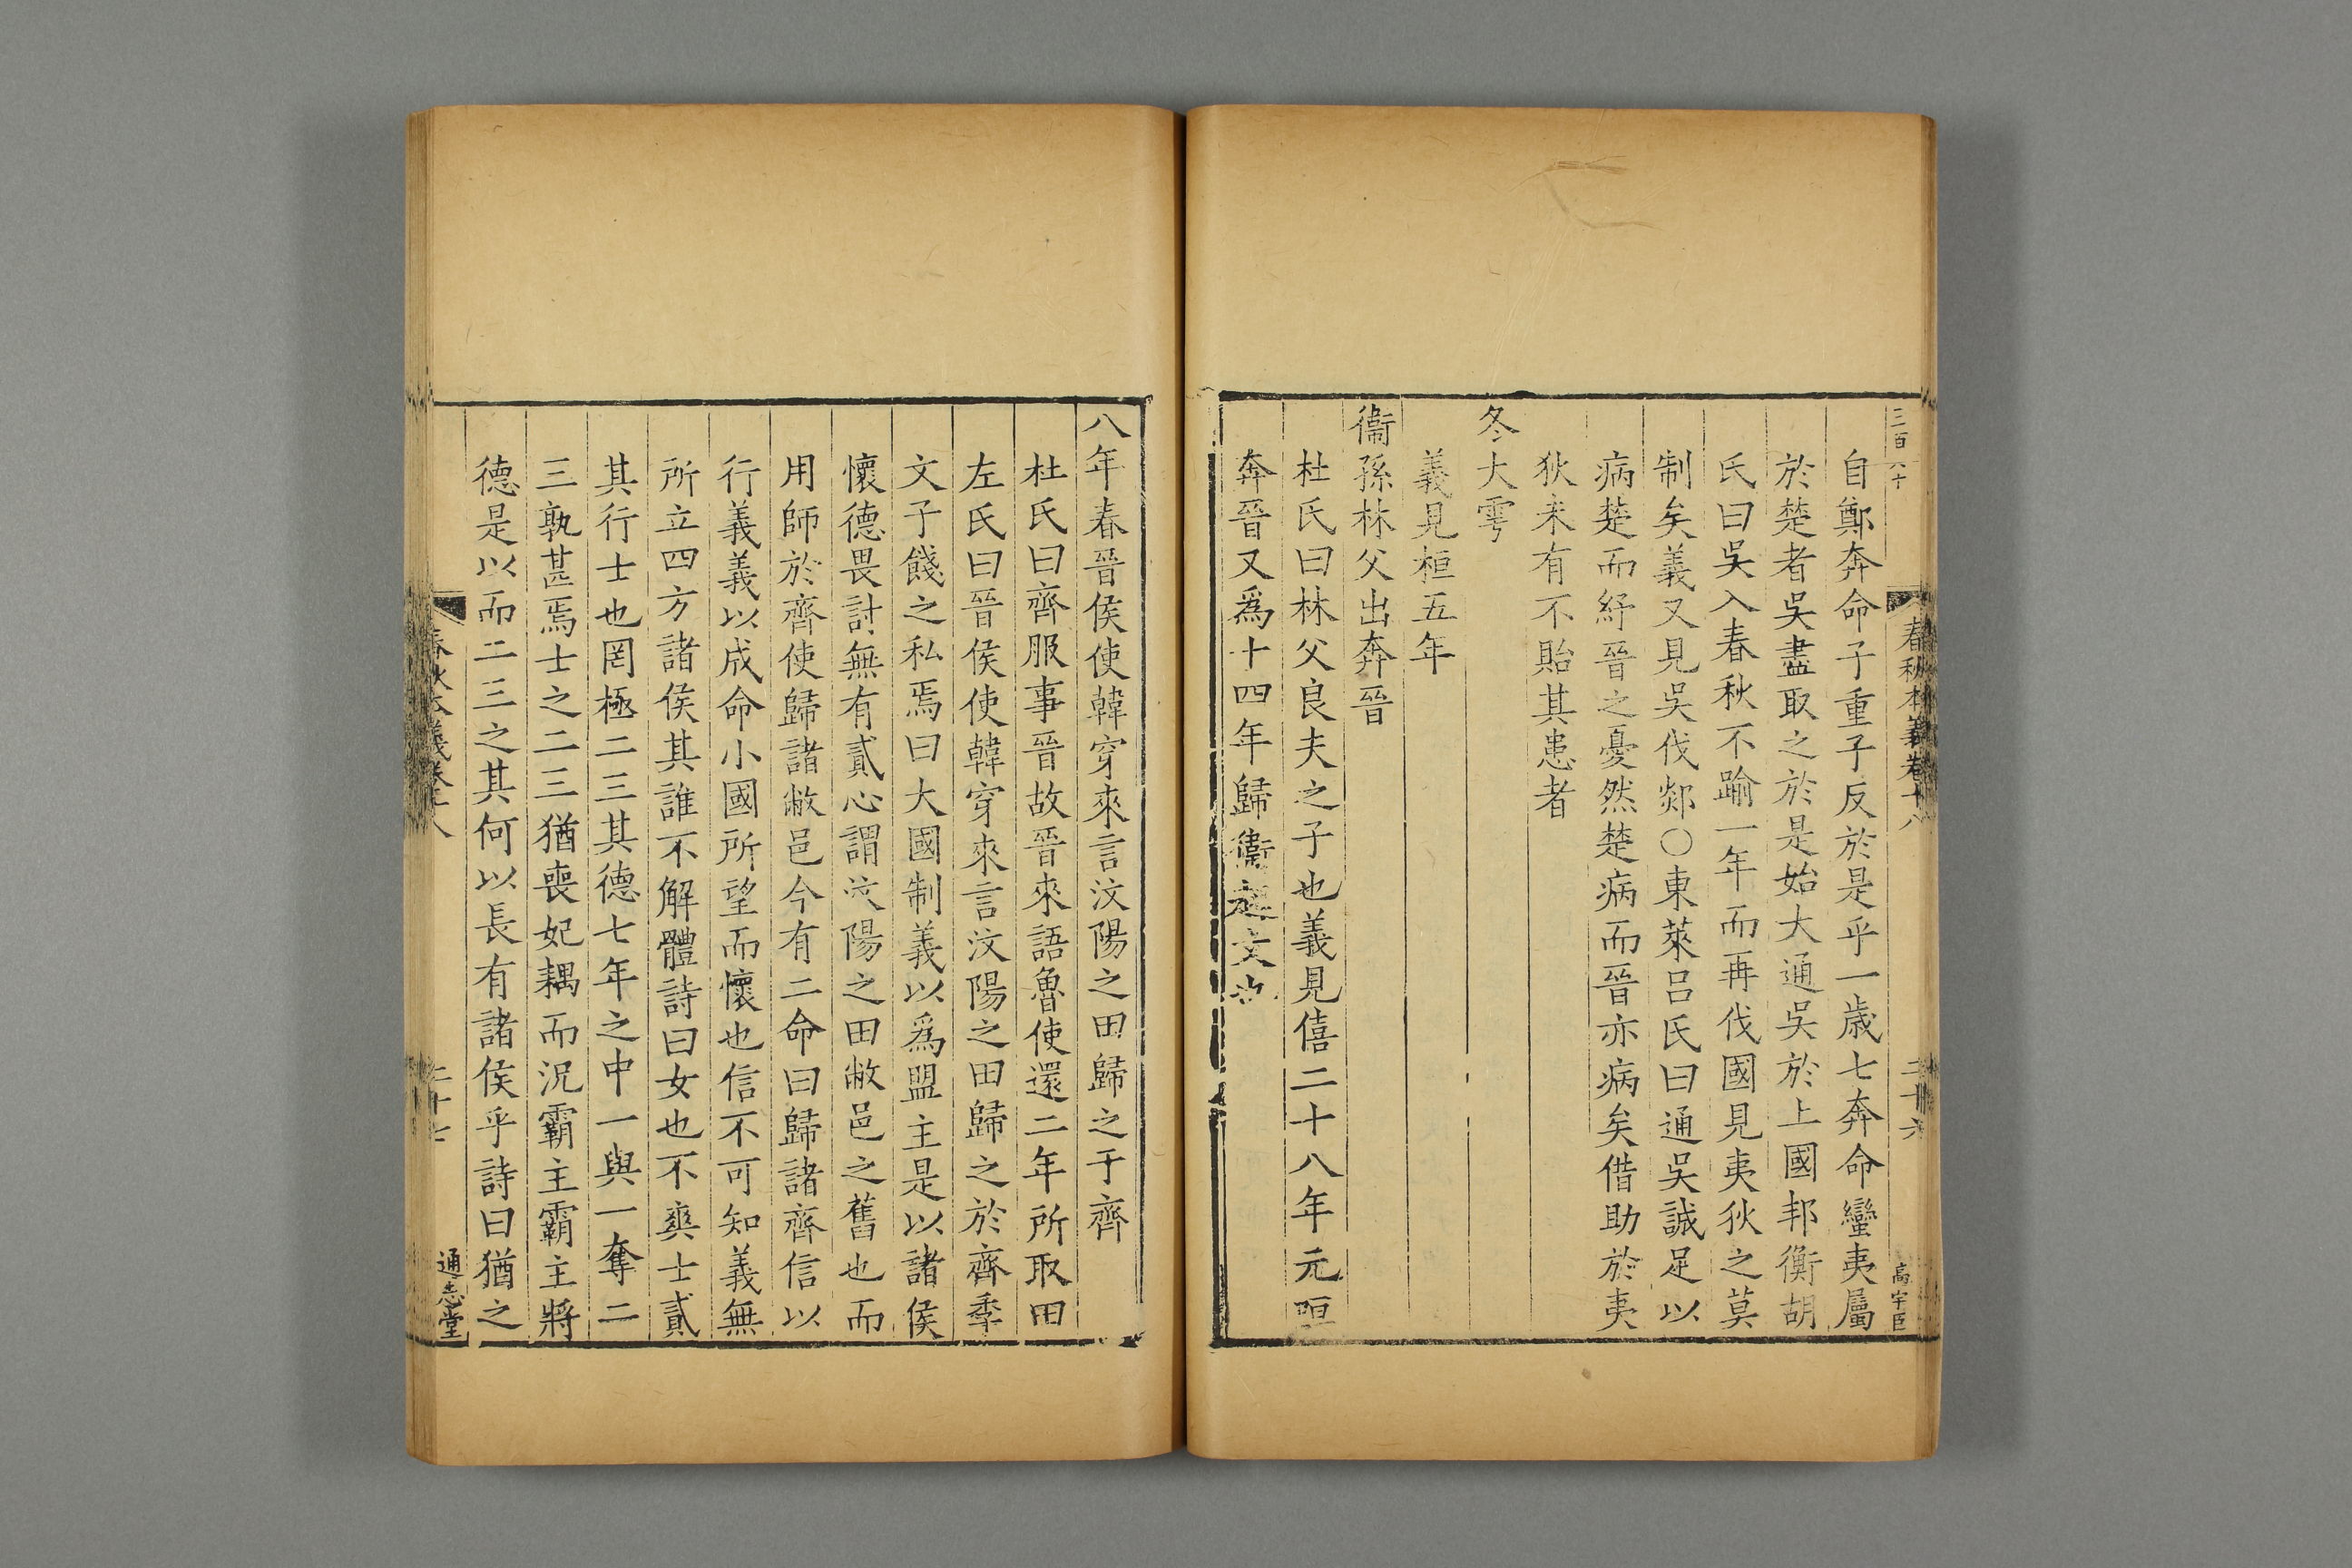 三百六十
春秋本義卷十八
二十六
高宇臣
自鄭奔命子重子反於是乎一歲七奔命蠻夷屬
於楚者吳盡取之於是始大通吳於上國邦衡胡
氏曰吳入春秋不踰一年而再伐國見夷狄之莫
制矣義又見吳伐郯○東萊呂氏曰通吳誠足以
病楚而紓晉之憂然楚病而晉亦病矣借助於夷
狄未有不貽其患者
冬大雩
義見桓五年
衞孫林父出奔晉
杜氏曰林父良夫之子也義見僖二十八年元咺
奔晉又爲十四年歸衞起文也
八年春晉侯使韓穿來言汶陽之田歸之于齊
杜氏曰齊服事晉故晉來語魯使還二年所取田
左氏曰晉侯使韓穿來言汶陽之田歸之於齊季
文子餞之私焉曰大國制義以爲盟主是以諸侯
懷德畏討無有貳心謂汶陽之田敝邑之舊也而
用師於齊使歸諸敝邑今有二命曰歸諸齊信以
行義義以成命小國所望而懷也信不可知義無
所立四方諸侯其誰不解體詩曰女也不爽士貳
其行士也罔極二三其德七年之中一與一奪二
三孰甚焉士之二三猶喪妃耦而況霸主霸主將
德是以而二三之其何以長有諸侯乎詩曰猶之
春秋本義卷十八
二十七
通志堂